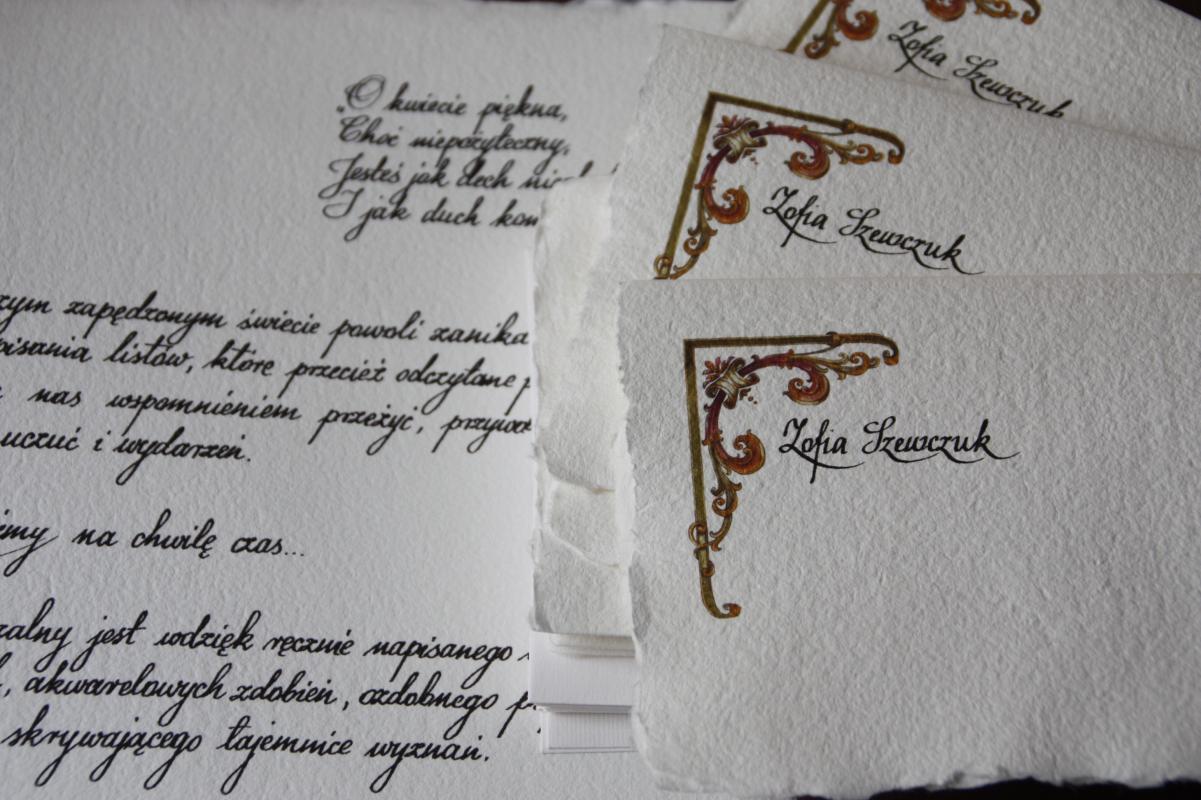 „O kwiecie piękna,
Choć niepożyteczny,
Jesteś jak dech
I jak duch
zapędzonym świecie powoli zanika
pisania listów, które przecież odczytane
nas wspomnieniem przeżyć,
uczuć i wydarzeń.
na chwilę czas...
jest wdzięk ręcznie napisanego
akwarelowych zdobień, ozdobnego
skrywającego tajemnice wyznań.
Zofia Szewczuk
Zofia Szewczuk
Zofia Szewczuk